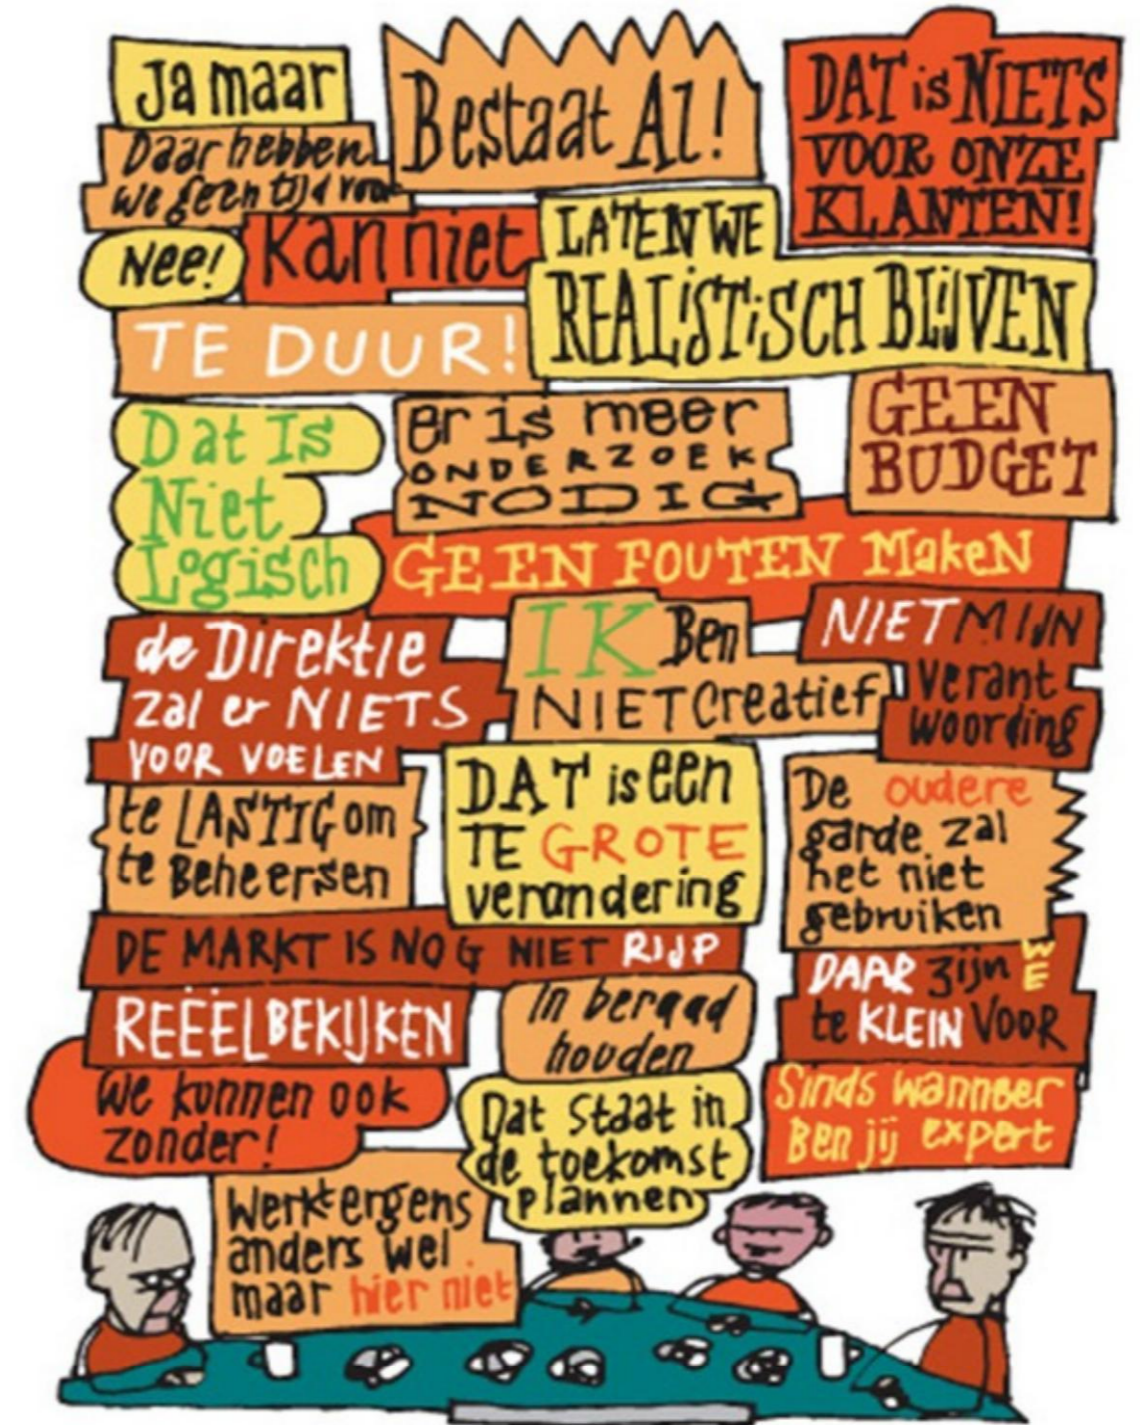 Ja maar
Bestaat Al!
DAT is NIETS
VOOR ONZE
KLANTEN!
Daar hebben
we geen tijd voor
Nee!
Kan niet
LATEN WE
REALiSTiSCH BLIJVEN
TE DUUR!
Dat Is
Niet
Logisch
er is meer
ONDERZOEK
NODIG
GEEN
BUDGET
GEEN FOUTEN MakeN
de Direktie
zal er NIETS
VOOR VOELEN
IK Ben
NIET Creatief
NIET MIJN
verant
woording
te LASTIG om
te Beheersen
DAT is een
TE GROTE
verandering
De oudere
garde zal
het niet
gebruiken
DE MARKT IS NOG NIET RIJP
DAAR zijn WE
te KLEIN VOOR
REËEL BEKIJKEN
In beraad
houden
We kunnen ook
zonder!
Dat staat in
de toekomst
plannen
Sinds wanneer
Ben jij expert
Werkt ergens
anders wel
maar hier niet